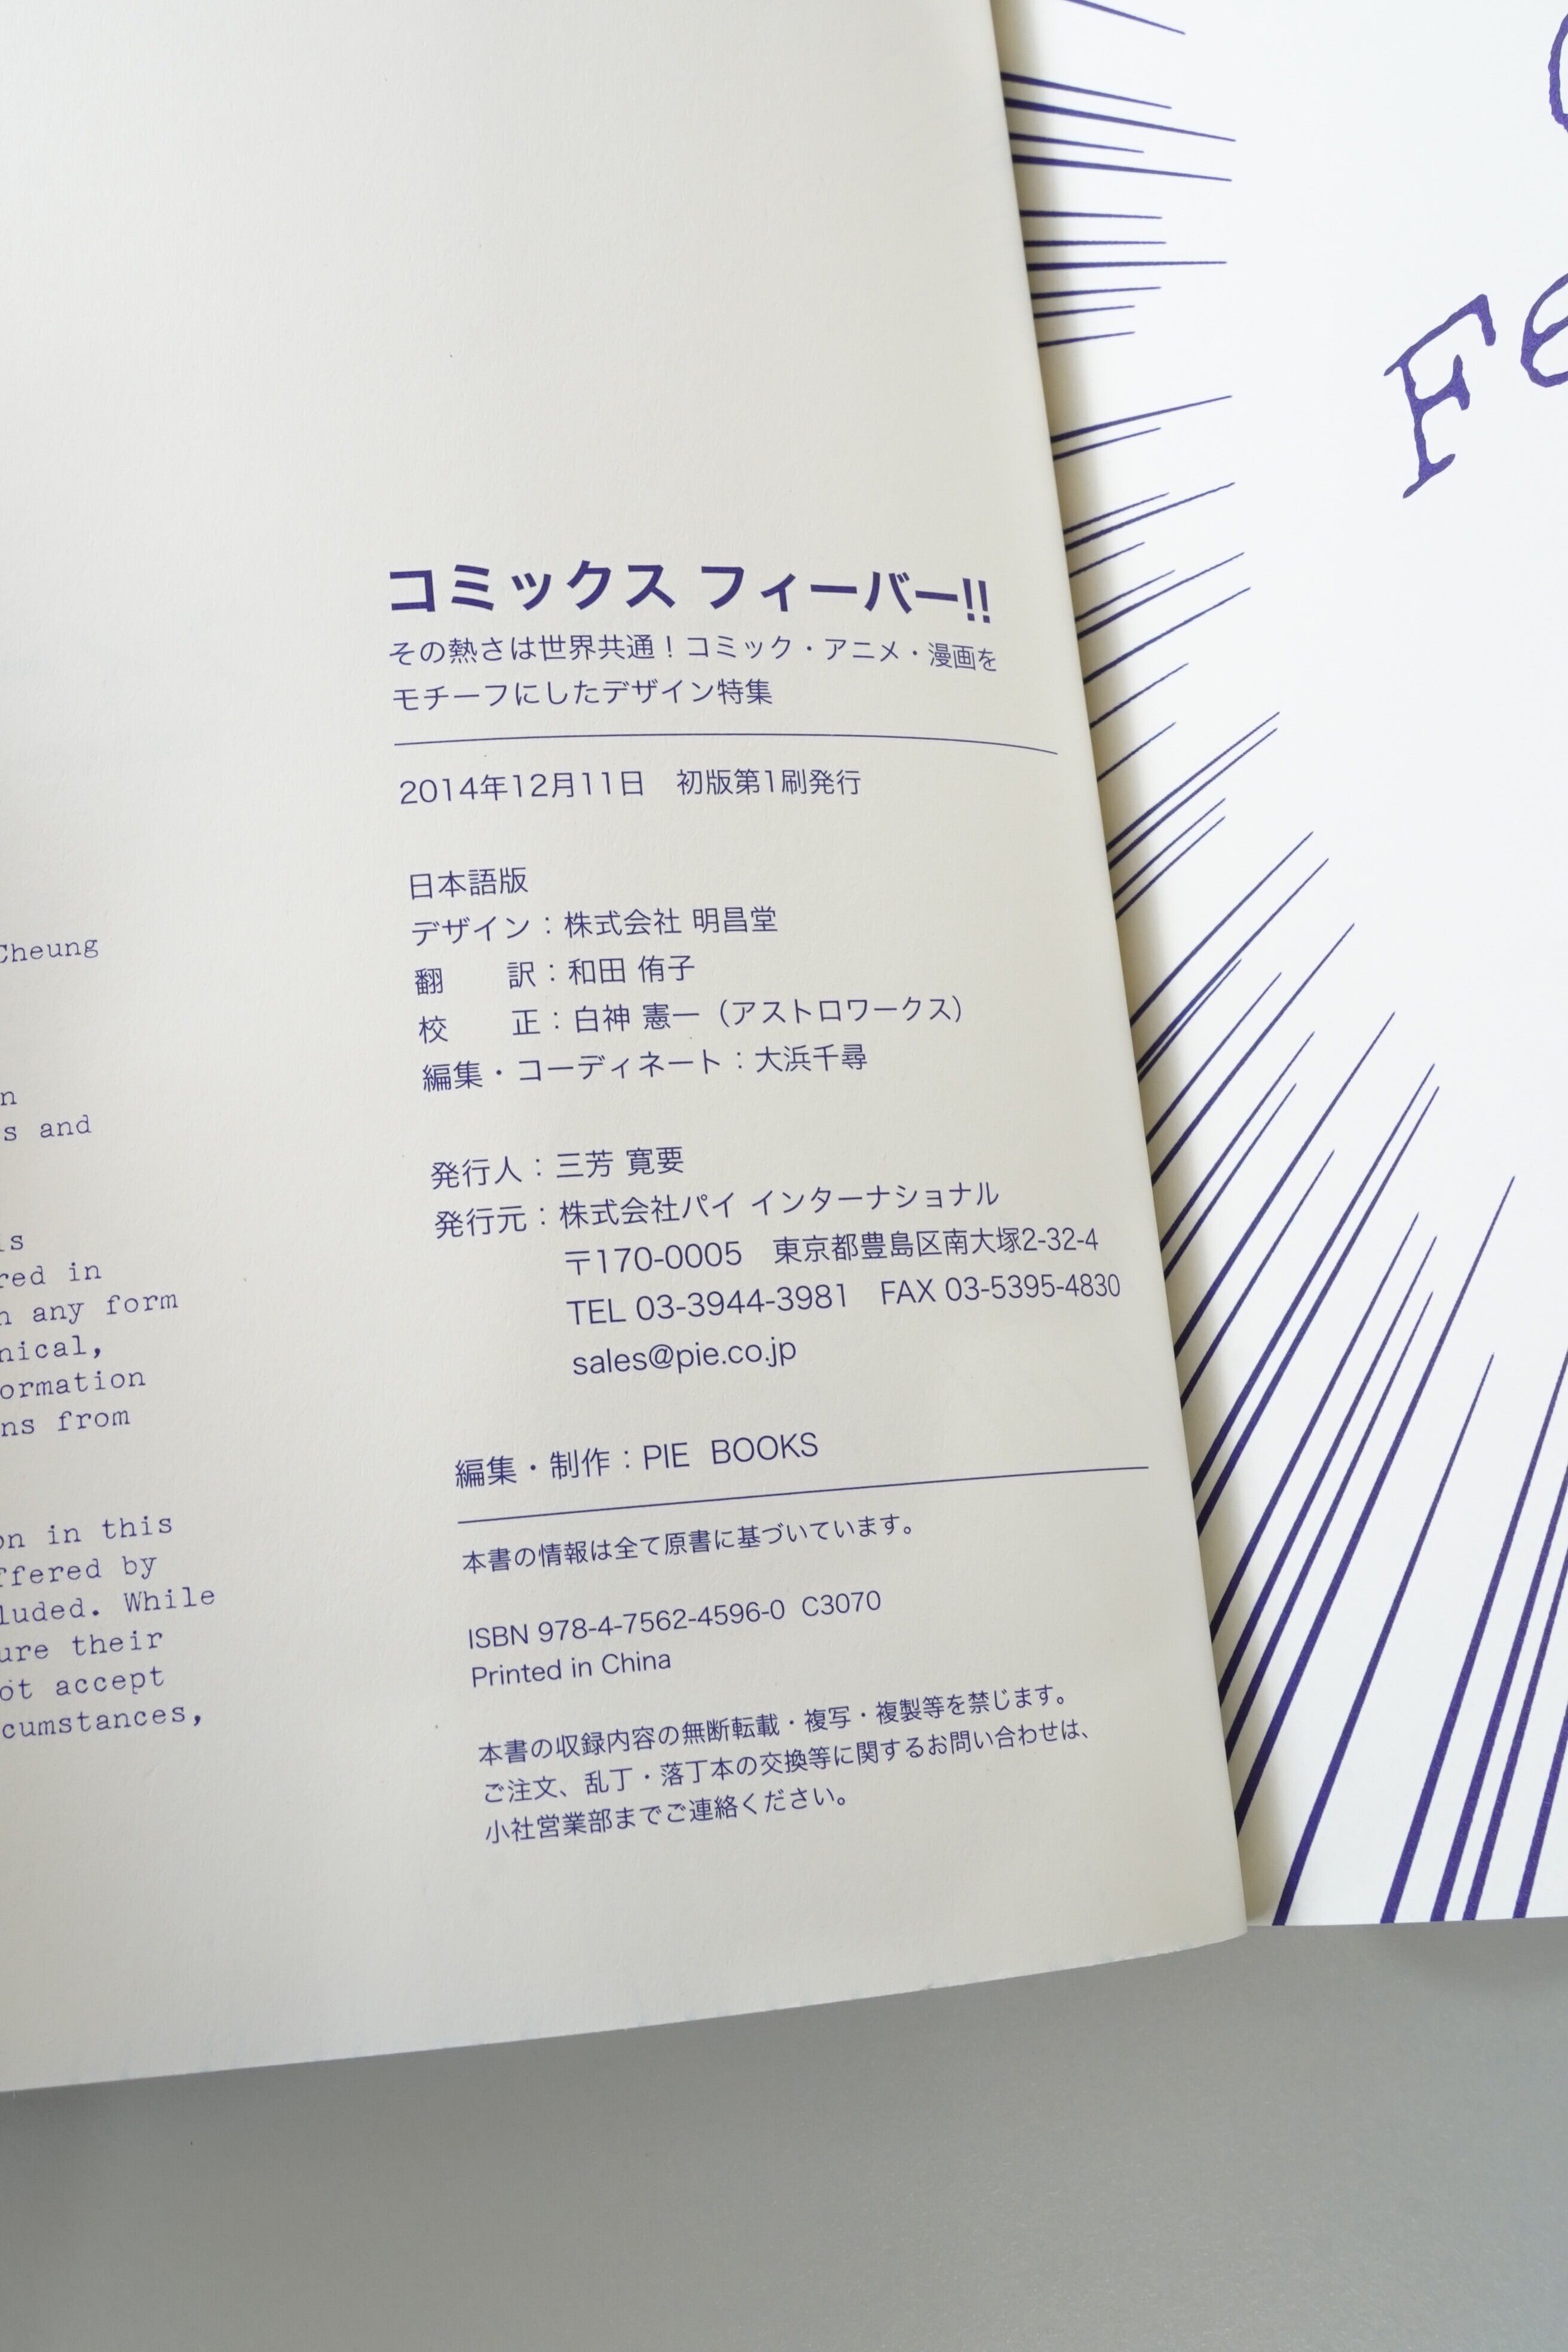 Cheung
s and
in
any form
ormation
ns from
in this
by
While
their
accept
コミックス フィーバー!!
その熱さは世界共通！コミック・アニメ・漫画を
モチーフにしたデザイン特集
2014年12月11日　初版第1刷発行
日本語版
デザイン：株式会社 明昌堂
翻　　訳：和田 侑子
校　　正：白神 憲一（アストロワークス）
編集・コーディネート：大浜千尋
発行人：三芳 寛要
発行元：株式会社パイ インターナショナル
〒170-0005　東京都豊島区南大塚2-32-4
TEL 03-3944-3981　FAX 03-5395-4830
sales@pie.co.jp
編集・制作：PIE BOOKS
本書の情報は全て原書に基づいています。
ISBN 978-4-7562-4596-0 C3070
Printed in China
本書の収録内容の無断転載・複写・複製等を禁じます。
ご注文、乱丁・落丁本の交換等に関するお問い合わせは、
小社営業部までご連絡ください。
Fe